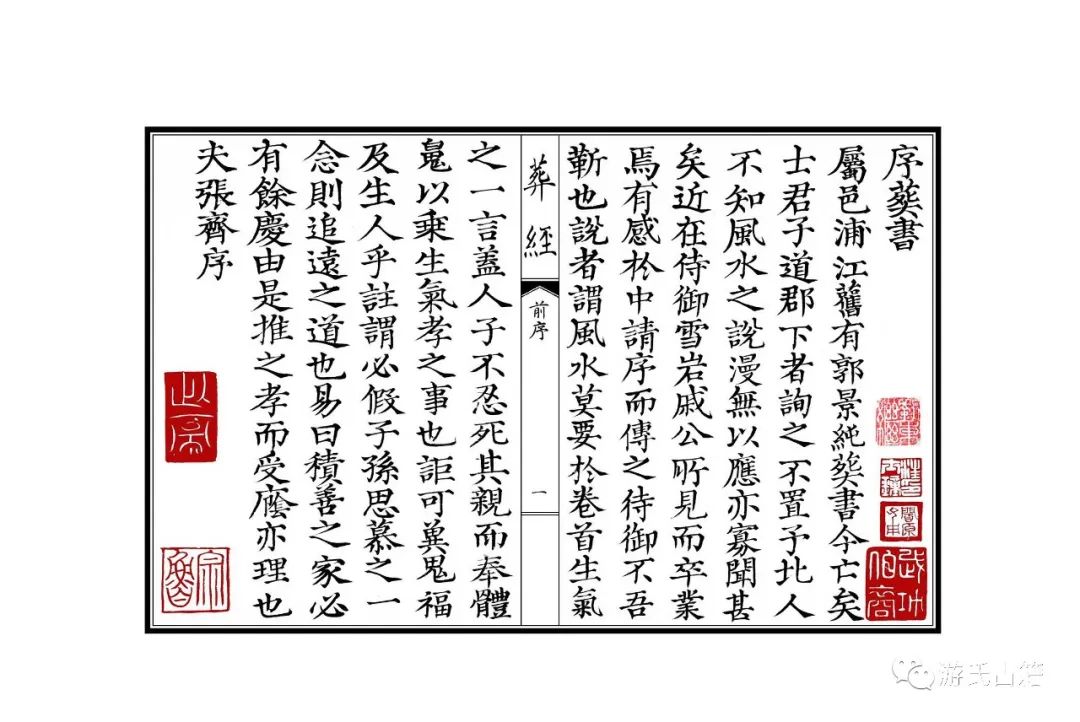 序葬書
屬邑浦江舊有郭景純葬書今亡矣
士君子道郡下者詢之不置予北人
不知風水之說漫無以應亦寡聞甚
矣近在侍御雪岩戚公所見而卒業
焉有感於中請序而傳之待御不吾
靳也說者謂風水莫要於卷首生氣
葬經
前序
一
之一言蓋人子不忍死其親而奉體
䰟以乘生氣孝之事也詎可兾鬼福
及生人乎註謂必假子孫思慕之一
念則追遠之道也易曰積善之家必
有餘慶由是推之孝而受廕亦理也
夫張齊序
游氏山塔